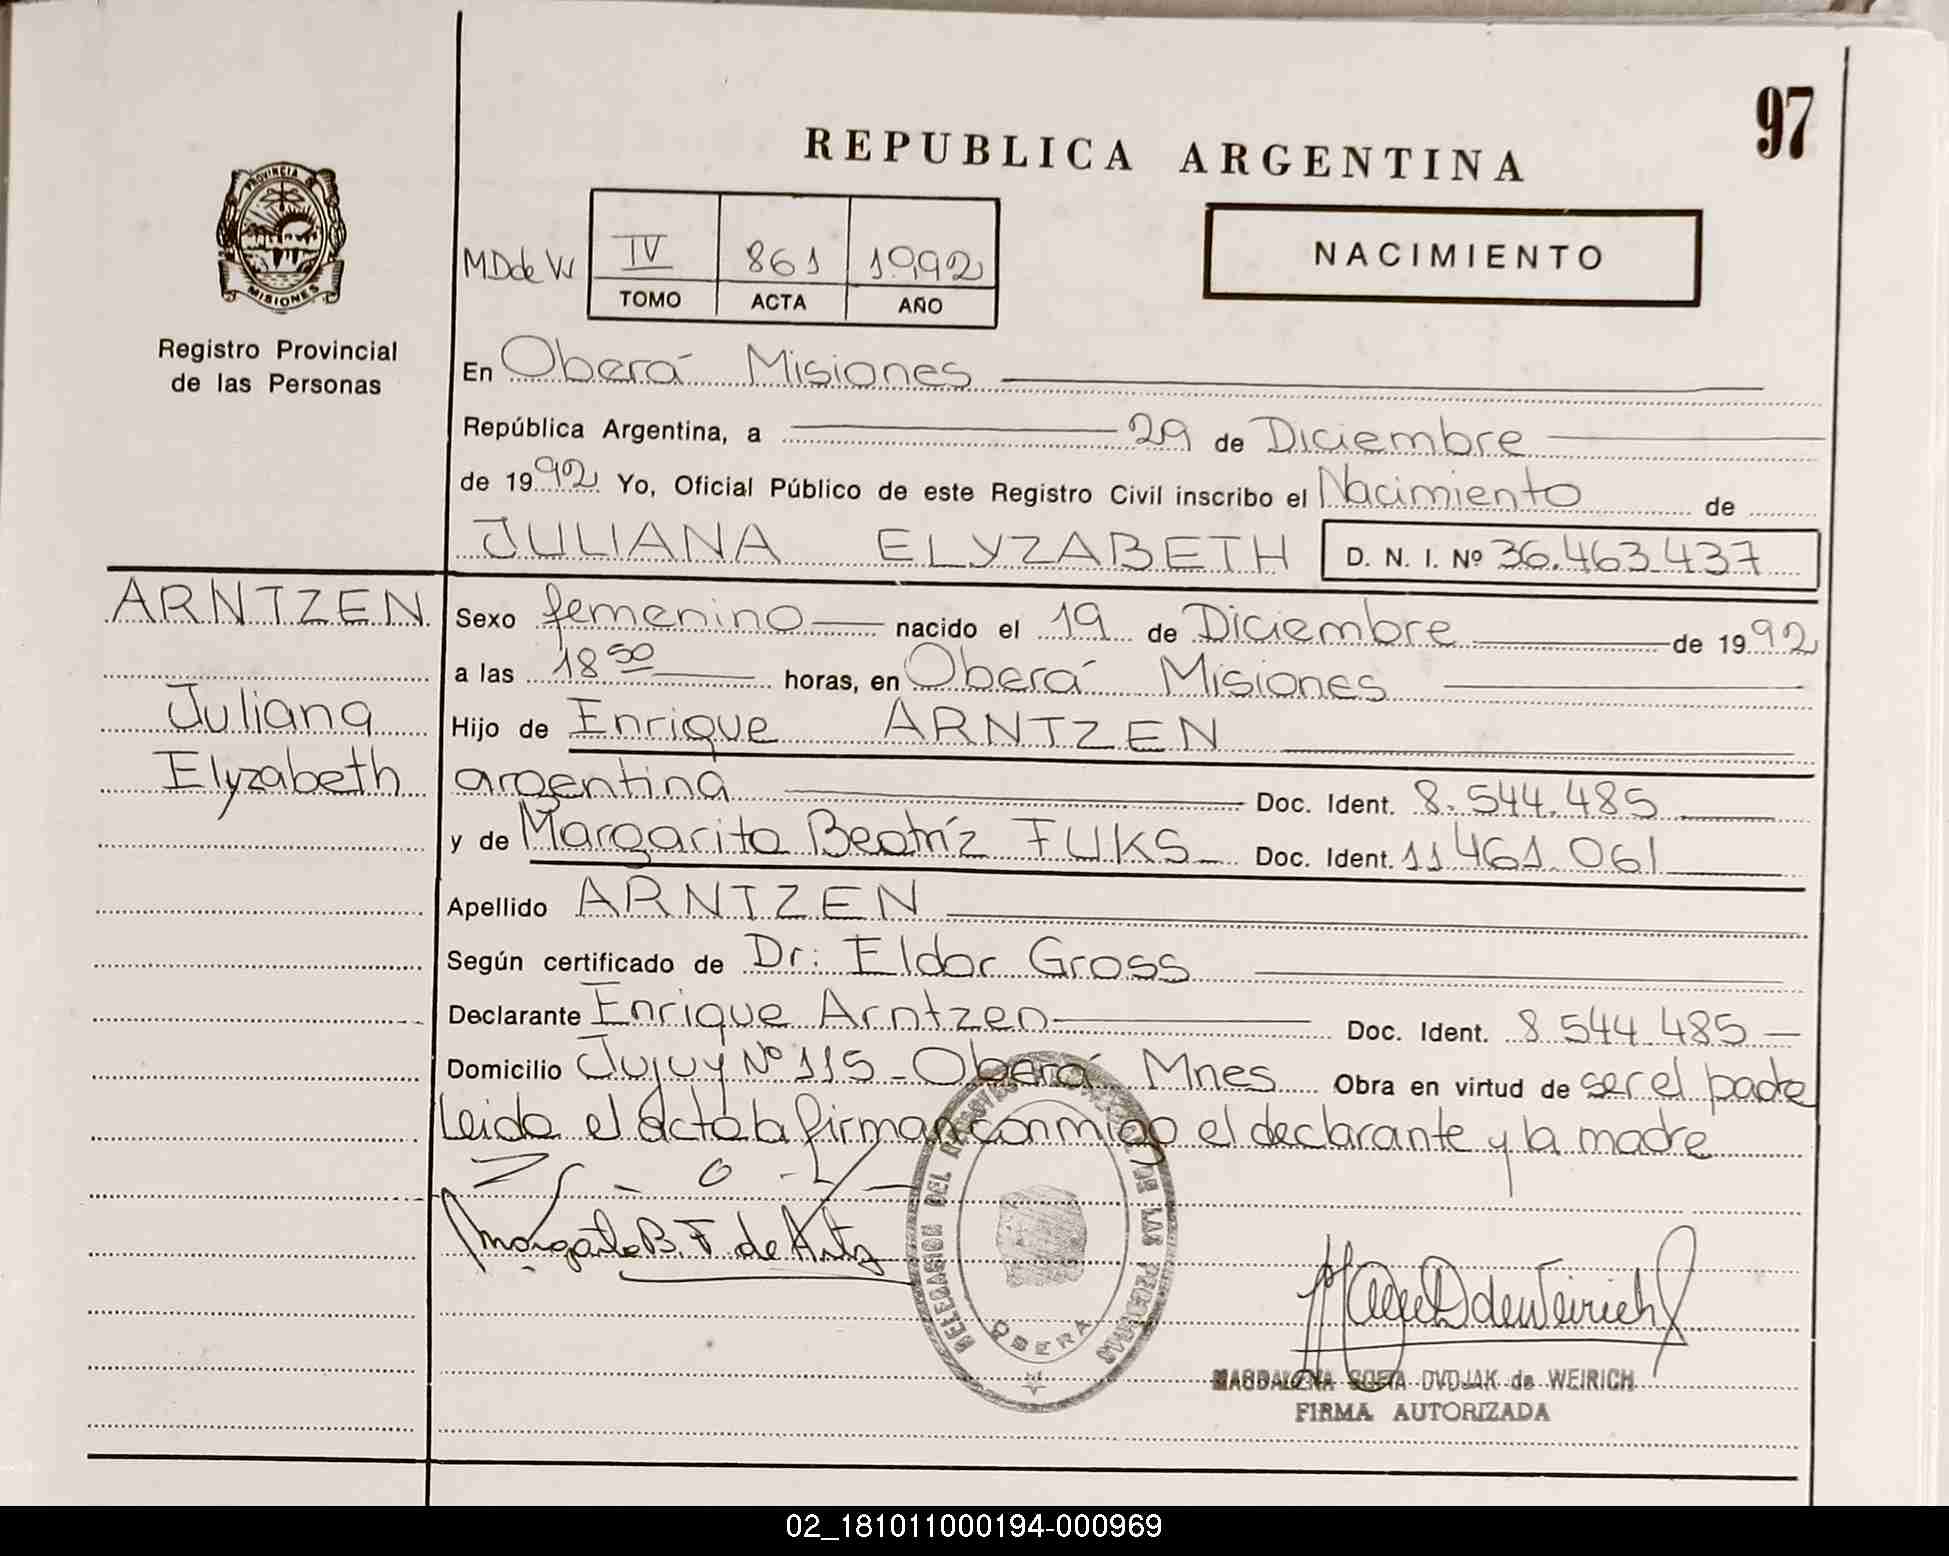 97
REPUBLICA ARGENTINA
PROVINCIA DE
MISIONES
Registro Provincial
de las Personas
NACIMIENTO
MDdeW IV 861 1992
TOMO ACTA AÑO
En Oberá Misiones
República Argentina, a 29 de Diciembre
de 1992 Yo, Oficial Público de este Registro Civil inscribo el Nacimiento de
JULIANA ELYZABETH D. N. I. Nº 36.463.437
ARNTZEN
Juliana
Elyzabeth
Sexo femenino nacido el 19 de Diciembre de 1992
a las 18 50 horas, en Oberá Misiones
Hijo de Enrique ARNTZEN
argentina Doc. Ident. 8.544.485
y de Margarita Beatríz FUKS Doc. Ident. 11.461.061
Apellido ARNTZEN
Según certificado de Dr: Eldor Gross
Declarante Enrique Arntzen Doc. Ident. 8.544.485
Domicilio Jujuy Nº 115 - Oberá Mnes Obra en virtud de ser el padre
Leida el acta la firman conmigo el declarante y la madre
Margarita B. F. de Arntz
DELEGACION DEL REGISTRO DE LAS PERSONAS
OBERA
MagdDdeWeirich
MAGDALENA SOFIA DVOJAK de WEIRICH
FIRMA AUTORIZADA
02_181011000194-000969